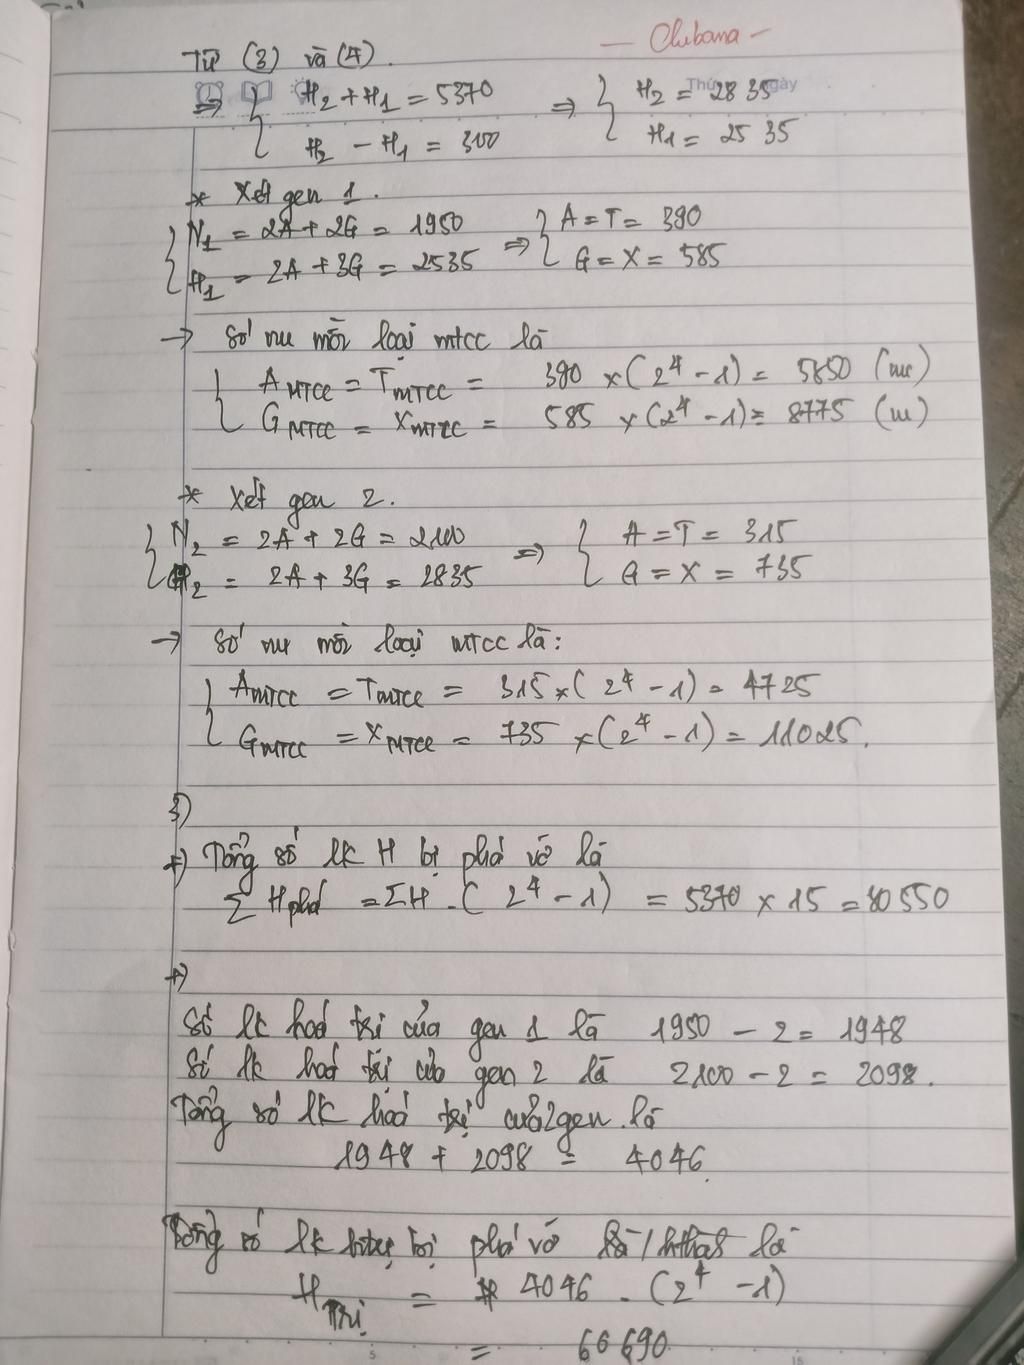 — Chibana —
Từ (3) và (4).
Thứ Ngày
⇒ { H₂ + H₁ = 5370 ⇒ { H₂ = 2835
H₂ - H₁ = 300 H₁ = 2535
* Xét gen 1.
{ N₁ = 2A + 2G = 1950 ⇒ { A = T = 390
H₁ = 2A + 3G = 2535 G = X = 585
→ Số nu mỗi loại mtcc là
{ A MTCC = T MTCC = 390 × (2⁴ - 1) = 5850 (nu)
G MTCC = X MTCC = 585 × (2⁴ - 1) = 8775 (nu)
* Xét gen 2.
{ N₂ = 2A + 2G = 2100 ⇒ { A = T = 315
H₂ = 2A + 3G = 2835 G = X = 735
→ Số nu mỗi loại MTCC là:
{ A MTCC = T MTCC = 315 × (2⁴ - 1) = 4725
G MTCC = X MTCC = 735 × (2⁴ - 1) = 11025.
3)
+) Tổng số lk H bị phá vỡ là
∑ H phá = ΣH . (2⁴ - 1) = 5370 × 15 = 80550
+)
Số lk hoá trị của gen 1 là 1950 - 2 = 1948
Số lk hoá trị của gen 2 là 2100 - 2 = 2098.
Tổng số lk hoá trị của 2 gen là
1948 + 2098 = 4046
Tổng số lk bị phá vỡ là
H Trị = 4046 . (2⁴ - 1)
= 60690
5
15